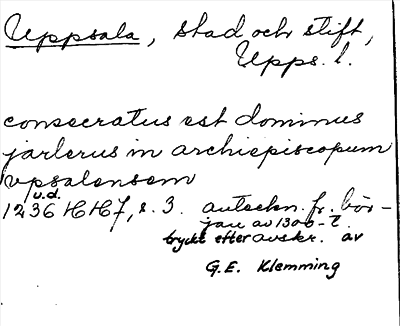 Uppsala, stad och stift,
Upps. l.
consecratus est dominus
jarlerus in archiepiscopum
vpsalensem
u.d.
1236 HH7, s. 3. anteckn. fr. bör-
jan av 1300-t.
tryckt efter avskr. av
G.E. Klemming